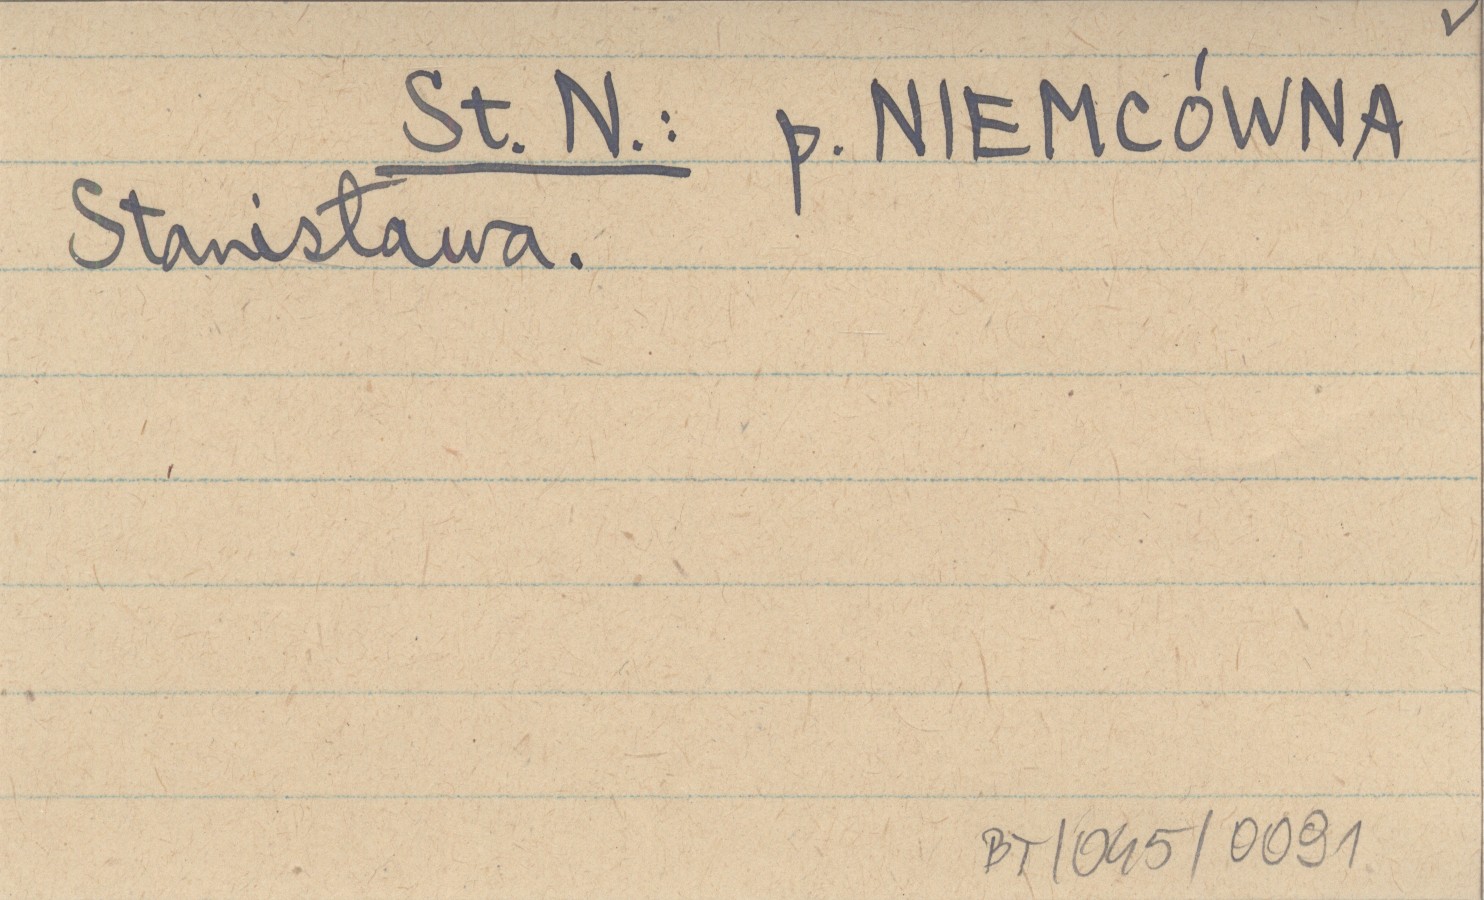 St. N.: p. NIEMCÓWNA
Stanisława.
BT/045/0091